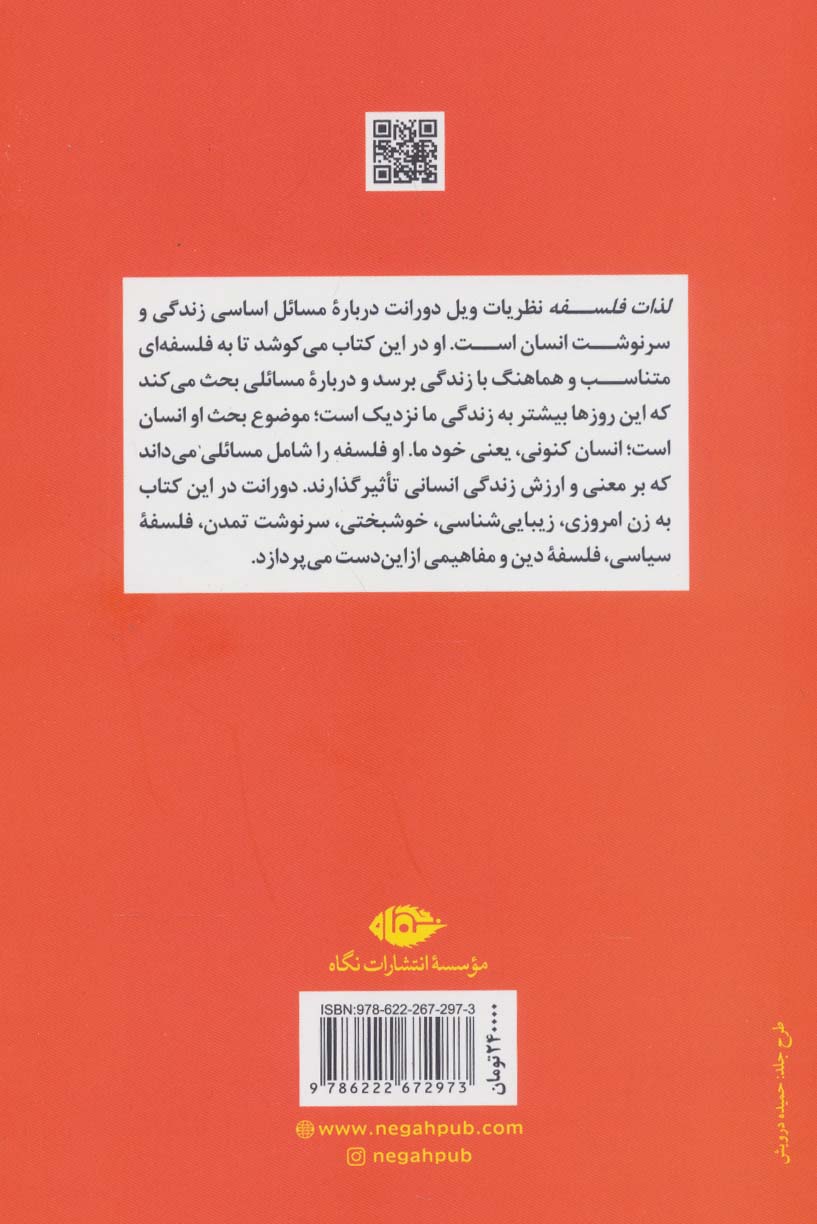 لذات فلسفه نظریات ویل دورانت دربارهٔ مسائل اساسی زندگی و
سرنوشت انسان است. او در این کتاب می‌کوشد تا به فلسفه‌ای
متناسب و هماهنگ با زندگی برسد و دربارهٔ مسائلی بحث می‌کند
که این روزها بیشتر به زندگی ما نزدیک است؛ موضوع بحث او انسان
است؛ انسان کنونی، یعنی خود ما. او فلسفه را شامل مسائلی می‌داند
که بر معنی و ارزش زندگی انسانی تأثیرگذارند. دورانت در این کتاب
به زن امروزی، زیبایی‌شناسی، خوشبختی، سرنوشت تمدن، فلسفهٔ
سیاسی، فلسفهٔ دین و مفاهیمی ازاین‌دست می‌پردازد.
نگاه
مؤسسهٔ انتشارات نگاه
ISBN:978-622-267-297-3
9 786222 672973
۲۴۰۰۰۰ تومان
www.negahpub.com
negahpub
طرح جلد: حمیده درویش